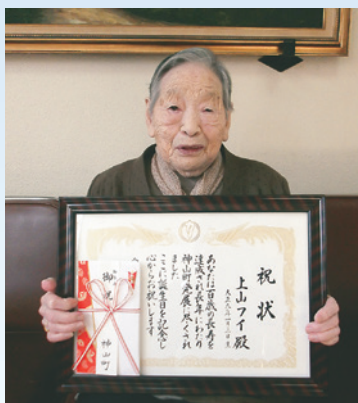 祝状
上山フイ殿
あなたは百歳の長寿を
達成され長年にわたり
神山町発展に尽くされ
ました
ここに誕生日を記念し
心からお祝いします
御祝
神山町